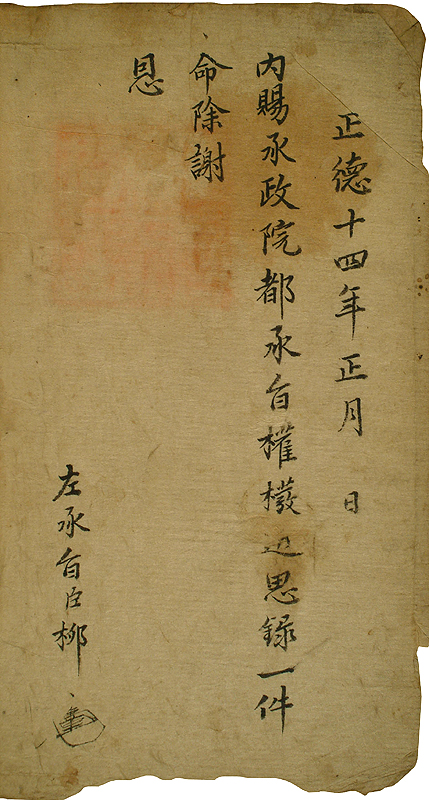 正德十四年正月 日
內賜承政院都承旨權橃近思錄一件
命除謝
恩
左承旨臣柳